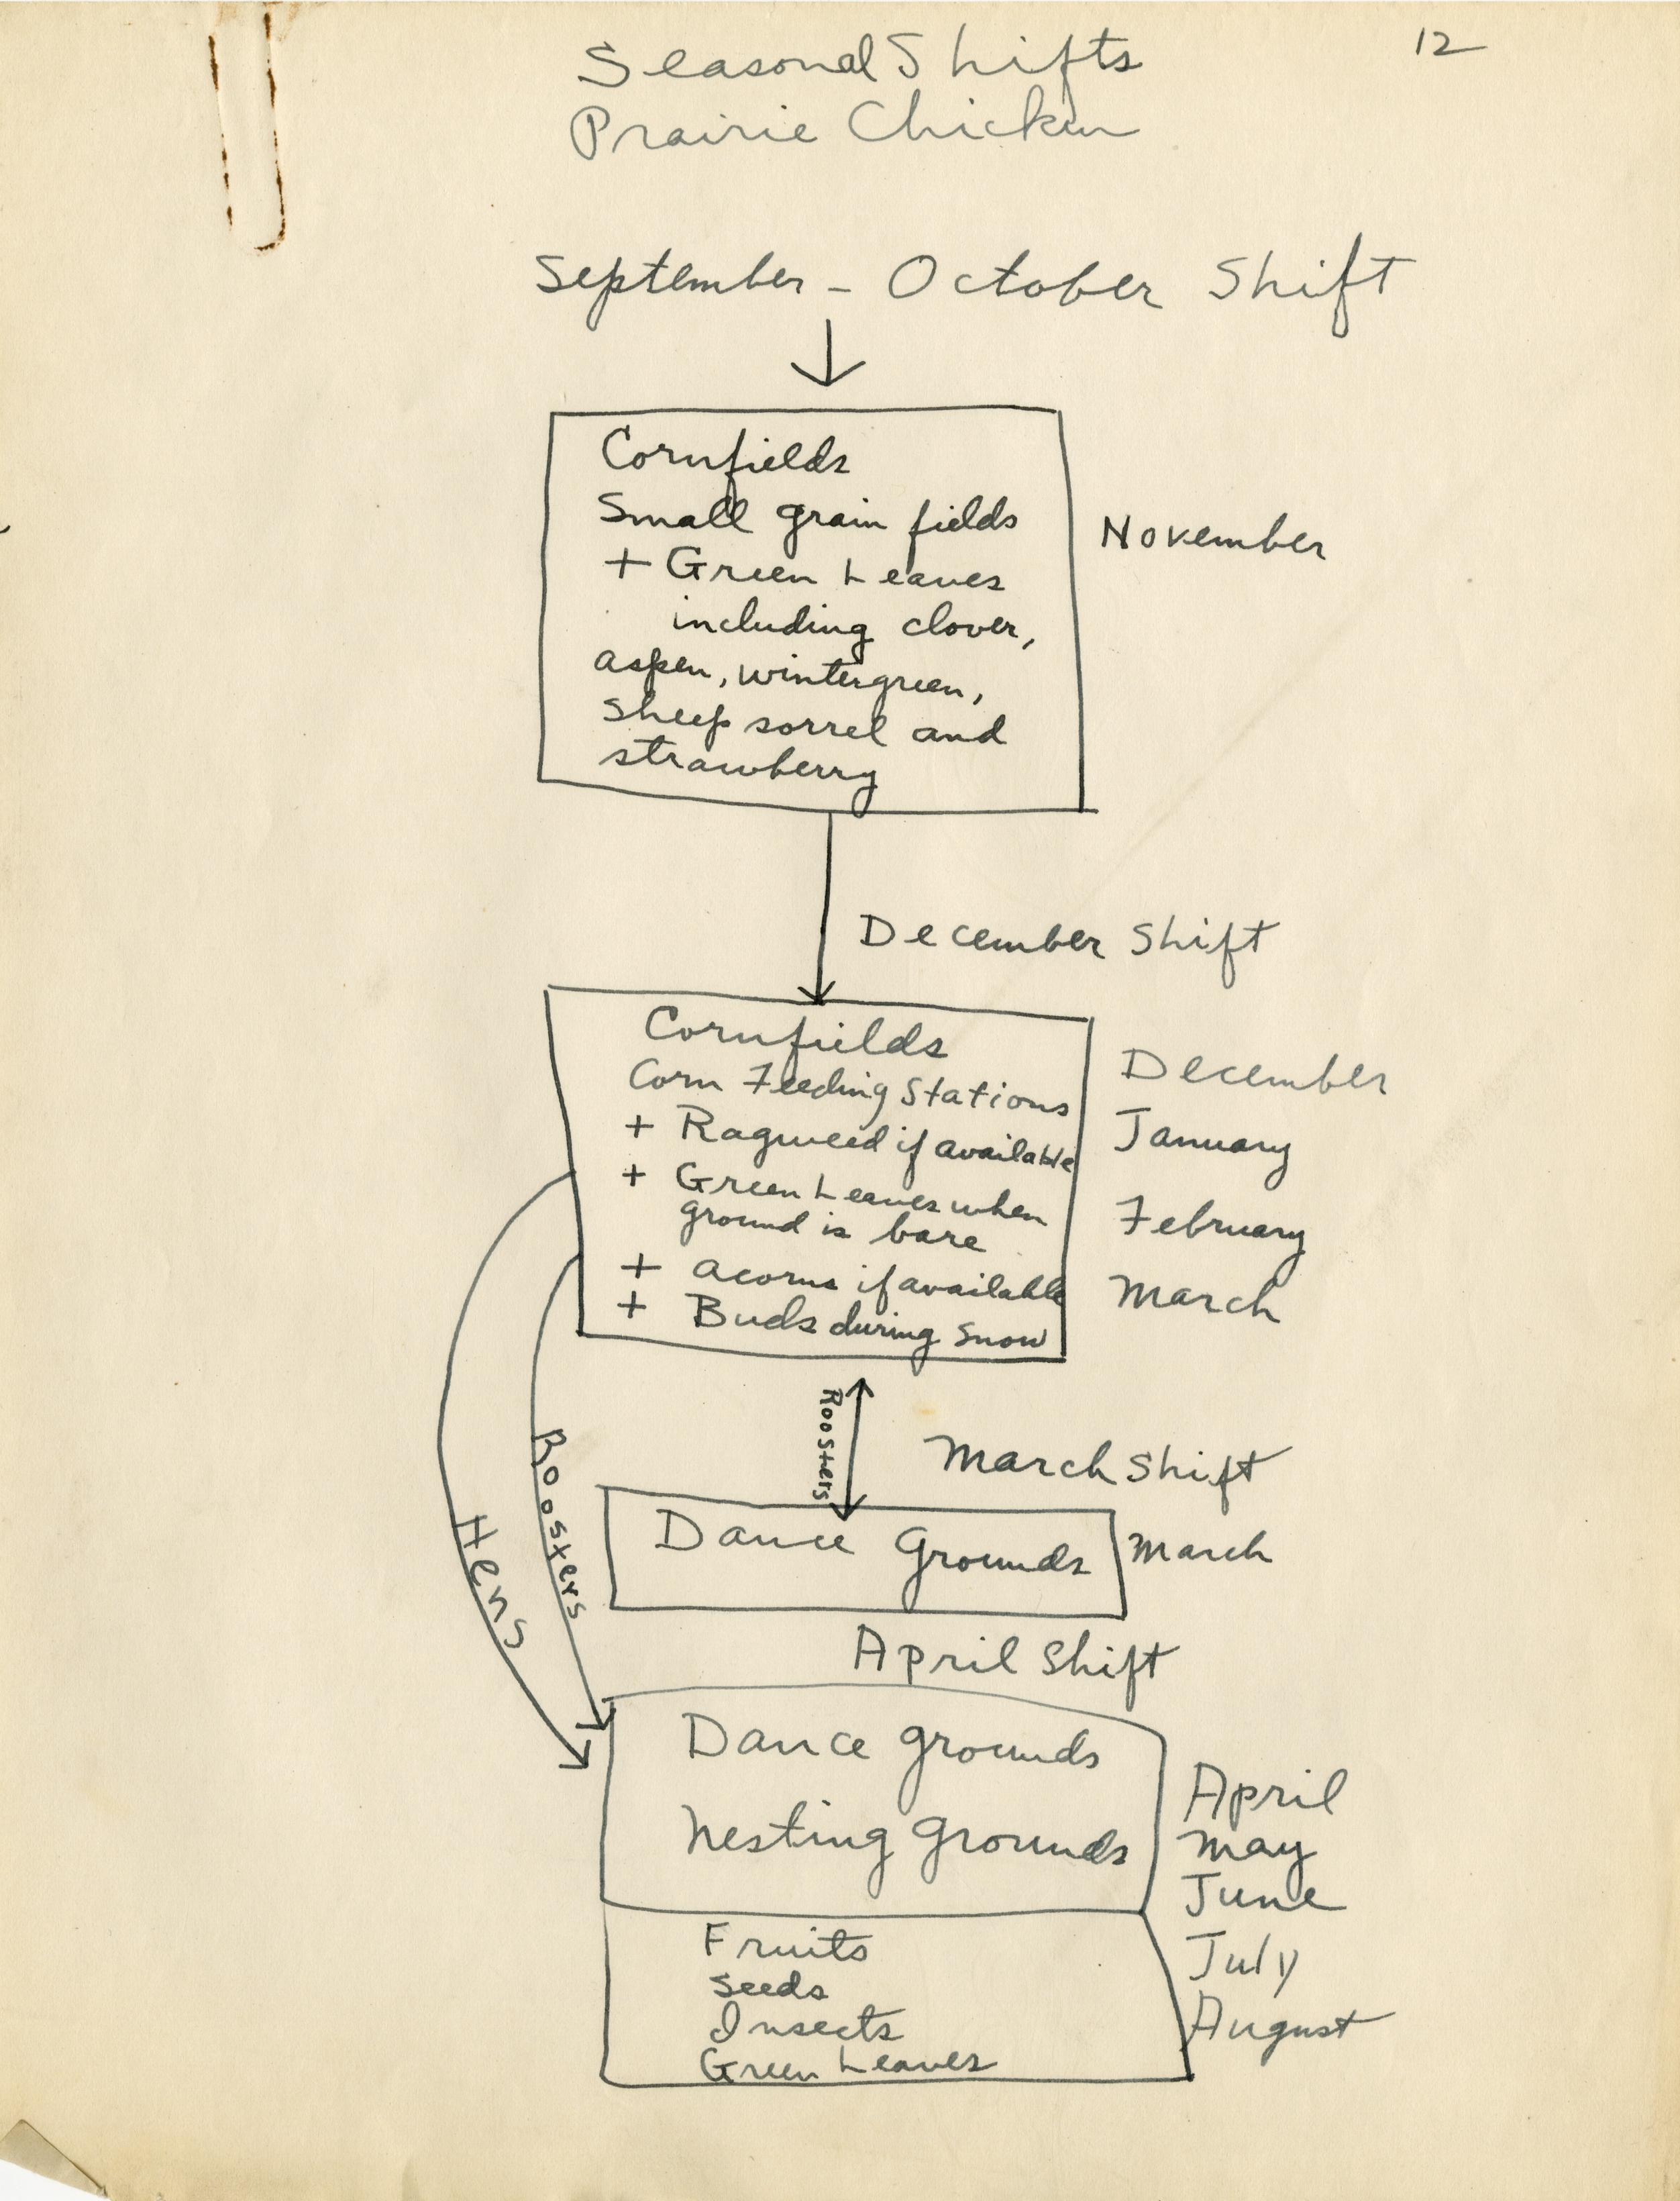 12
Seasonal Shifts
Prairie Chicken
September - October Shift
Cornfields
Small grain fields
+ Green Leaves
including clover,
aspen, wintergreen,
sheep sorrel and
strawberry
November
December Shift
Cornfields
Corn Feeding Stations
+ Ragweed if available
+ Green Leaves when
ground is bare
+ acorns if available
+ Buds during snow
December
January
February
March
Roosters
March Shift
Roosters
Hens
Dance Grounds
March
April Shift
Dance grounds
Nesting grounds
April
May
June
July
August
Fruits
Seeds
Insects
Green Leaves